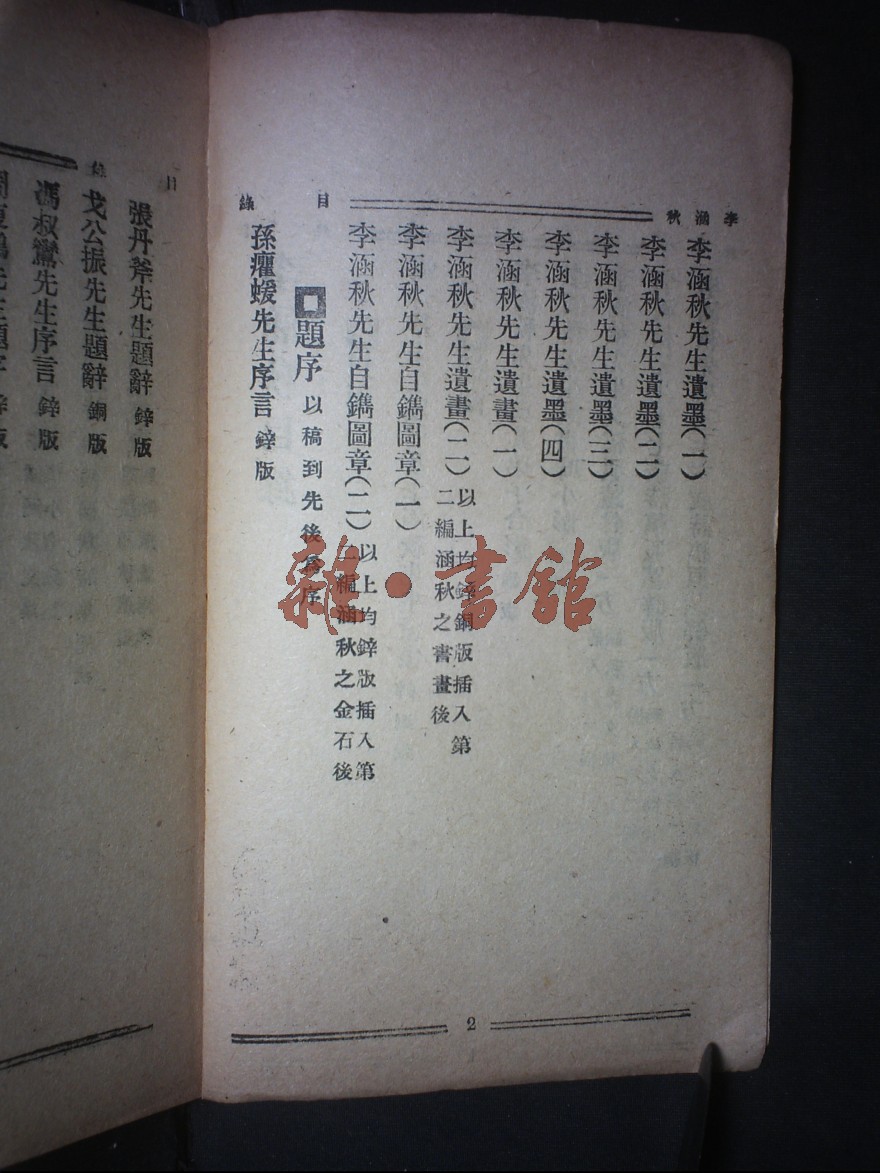 李涵秋 目錄
李涵秋先生遺墨(一)
李涵秋先生遺墨(二)
李涵秋先生遺墨(三)
李涵秋先生遺墨(四)
李涵秋先生遺畫(一)
李涵秋先生遺畫(二)以上均鋅銅版插入第
二編涵秋之書畫後
李涵秋先生自鐫圖章(一)
李涵秋先生自鐫圖章(二)以上均鋅版插入第
二編涵秋之金石後
題序 以稿到先後爲序
孫癯蝯先生序言 鋅版
2
目錄
張丹斧先生題辭 鋅版
戈公振先生題辭 銅版
馮叔鸞先生序言 鋅版
先生題字 鋅版
雜·書館